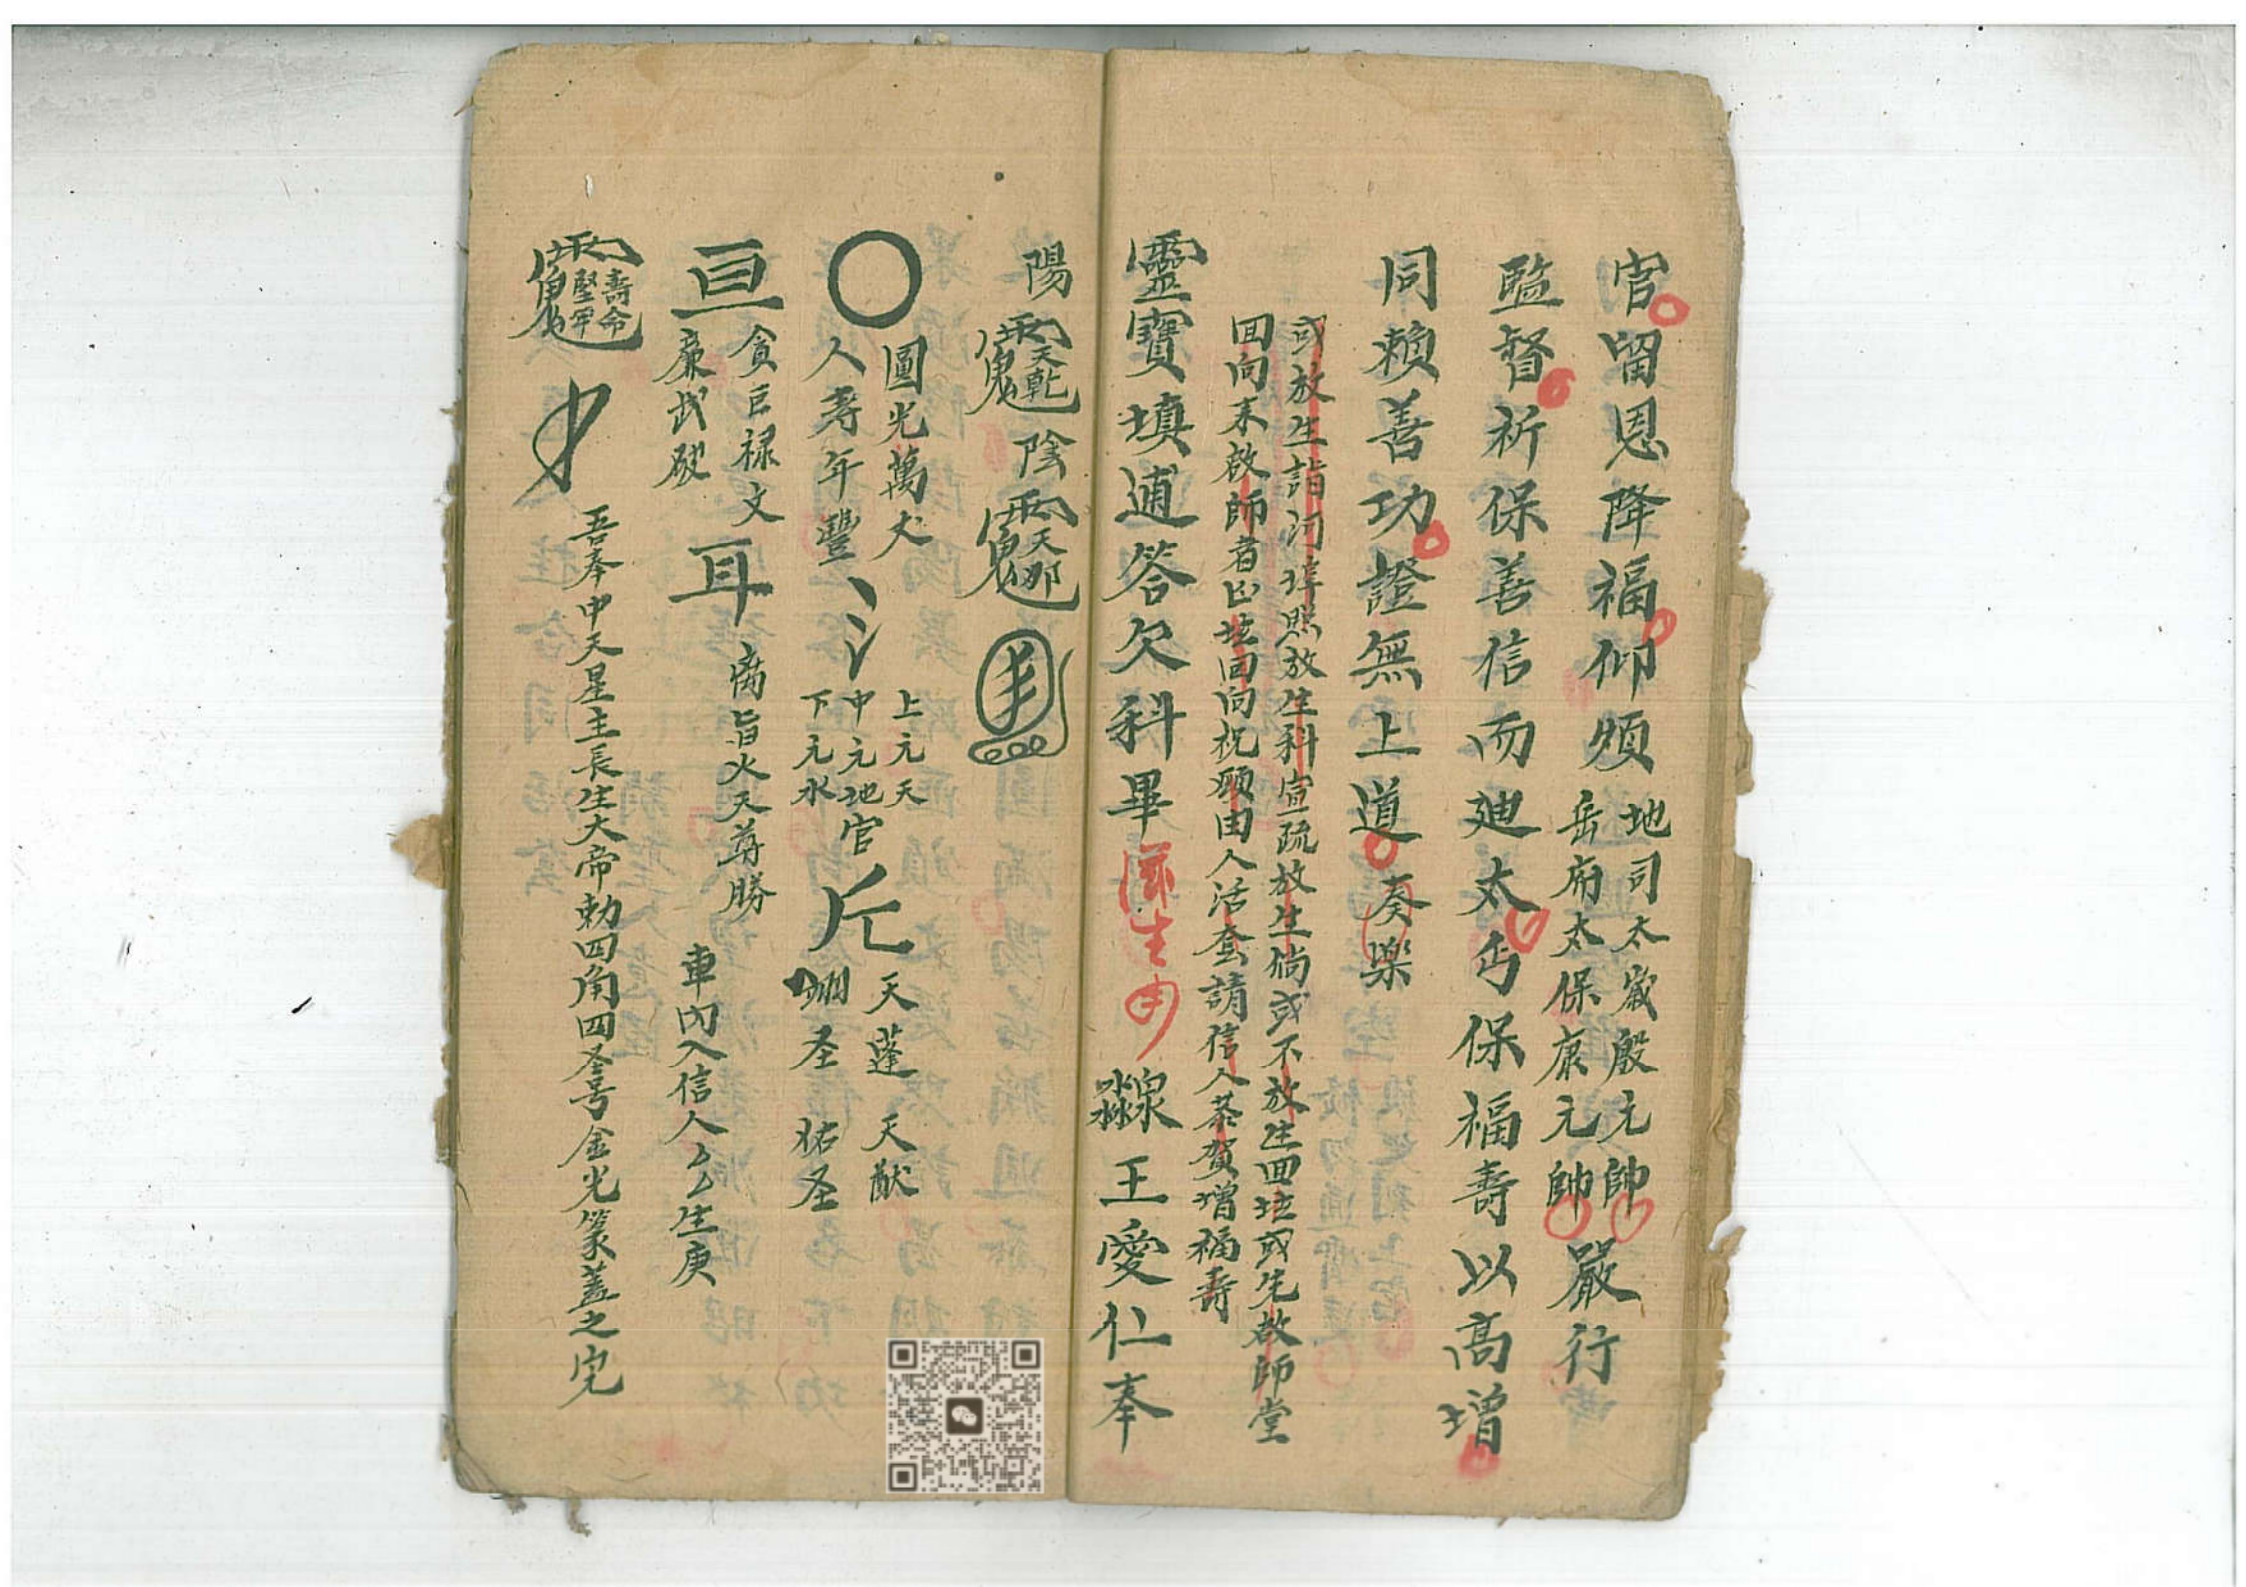 官留恩降福仰煩
地司太歲殷元帥
岳府太保康元帥
嚴行
監督祈保善信而廸太丐保福壽以高增
同賴善功證無上道奏樂
或放生詣河埠照放生科宣疏放生倘或不放生回壇或先啟師堂
回向未啟師者止壇回向祝願由人活套請信人恭賀增福壽
靈寶填逋答欠科畢
王愛仁奉
陽
天乾
陰
天那
圓光萬丈
人寿年豐
上元天
中元地官
下元水
天蓬 天猷
翊圣 祐圣
貪巨禄文
廉武破
火天尊勝
車內入信人厶厶生庚
壽命
堅牢
吾奉中天星主長生大帝勅四角四圣号金光篆蓋之完